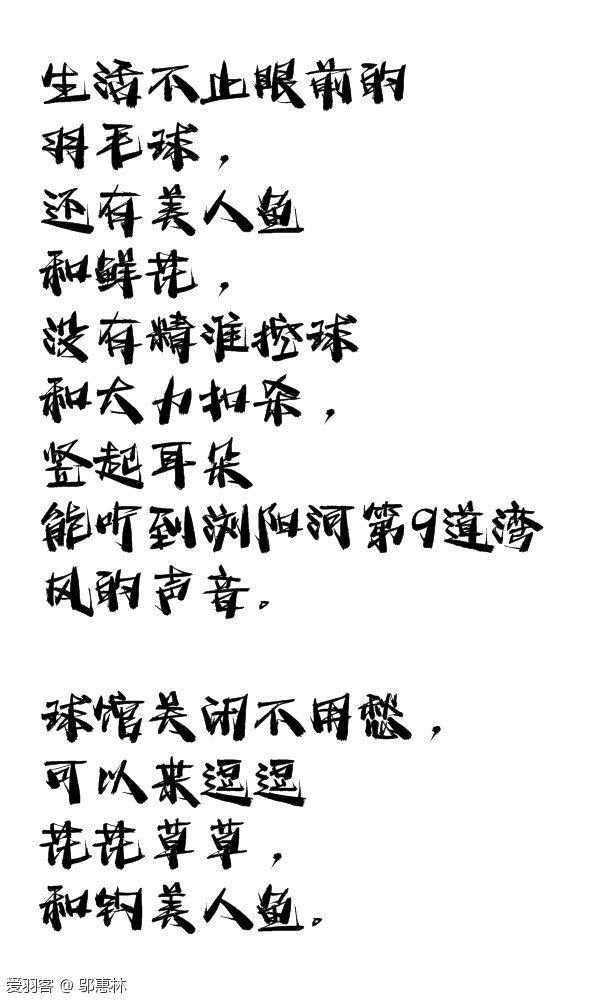 生活不止眼前的
羽毛球，
还有美人鱼
和鲜花，
没有精准控球
和大力扣杀，
竖起耳朵
能听到浏阳河第9道湾
风的声音。
球馆关闭不用愁，
可以来逗逗
花花草草，
和钩美人鱼。
爱羽客 @ 邬惠林